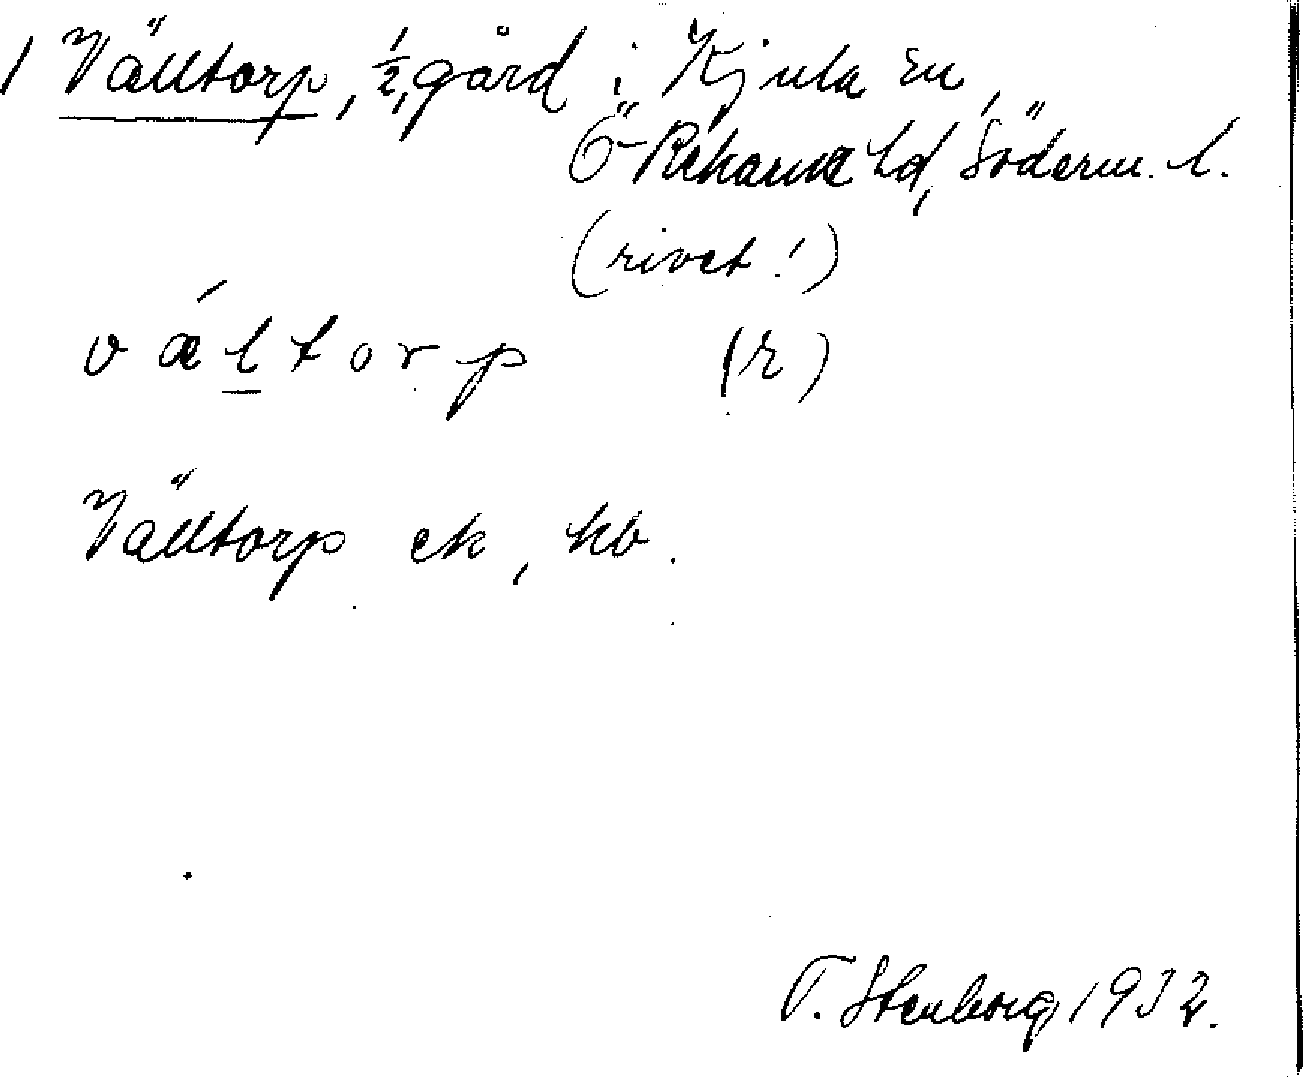 1 Välltorp, 1/2 gård i Kjula sn,
Ö-Rekarne hd, Söderm. l.
(rivet!)
vǽltorp (r)
Välltorp ek, kb.
T. Stenborg 1932.